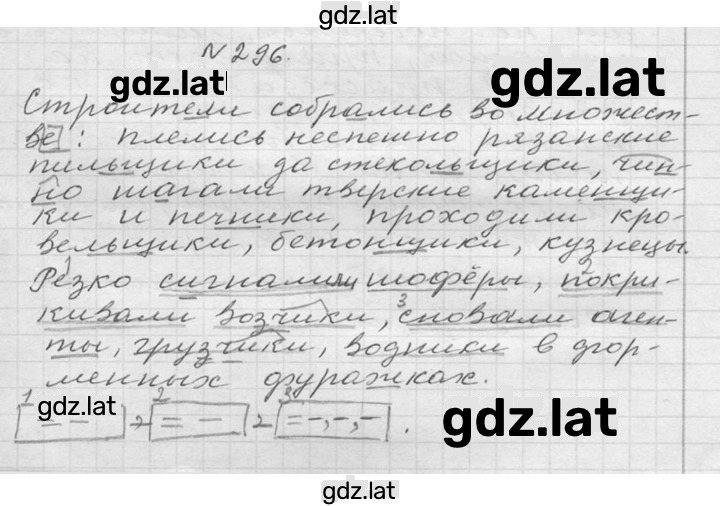 gdz.lat
N 296.
gdz.lat
gdz.lat
Строители собрались во множест-
ве: плелись неспешно рязанские
пильщики да стекольщики, чин-
но шагали тверские каменщи-
ки и печники, проходили кро-
вельщики, бетонщики, кузнецы.
Резко сигналили шофёры, покри-
кивали возчики, сновали аген-
ты, грузчики, водники в фор-
менных фуражках.
gdz.lat
1 2 3
= - , = - , = -, -, - .
gdz.lat
gdz.lat